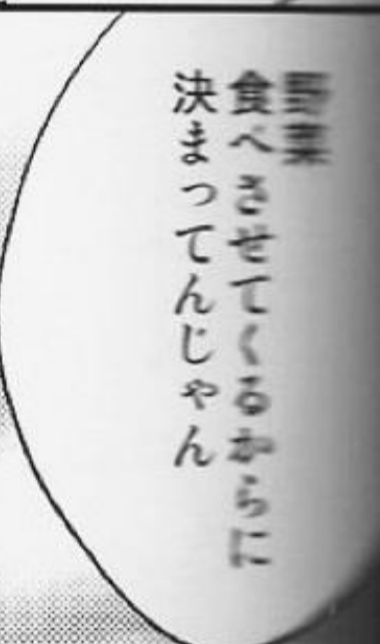 野菜
食べさせてくるからに
決まってんじゃん